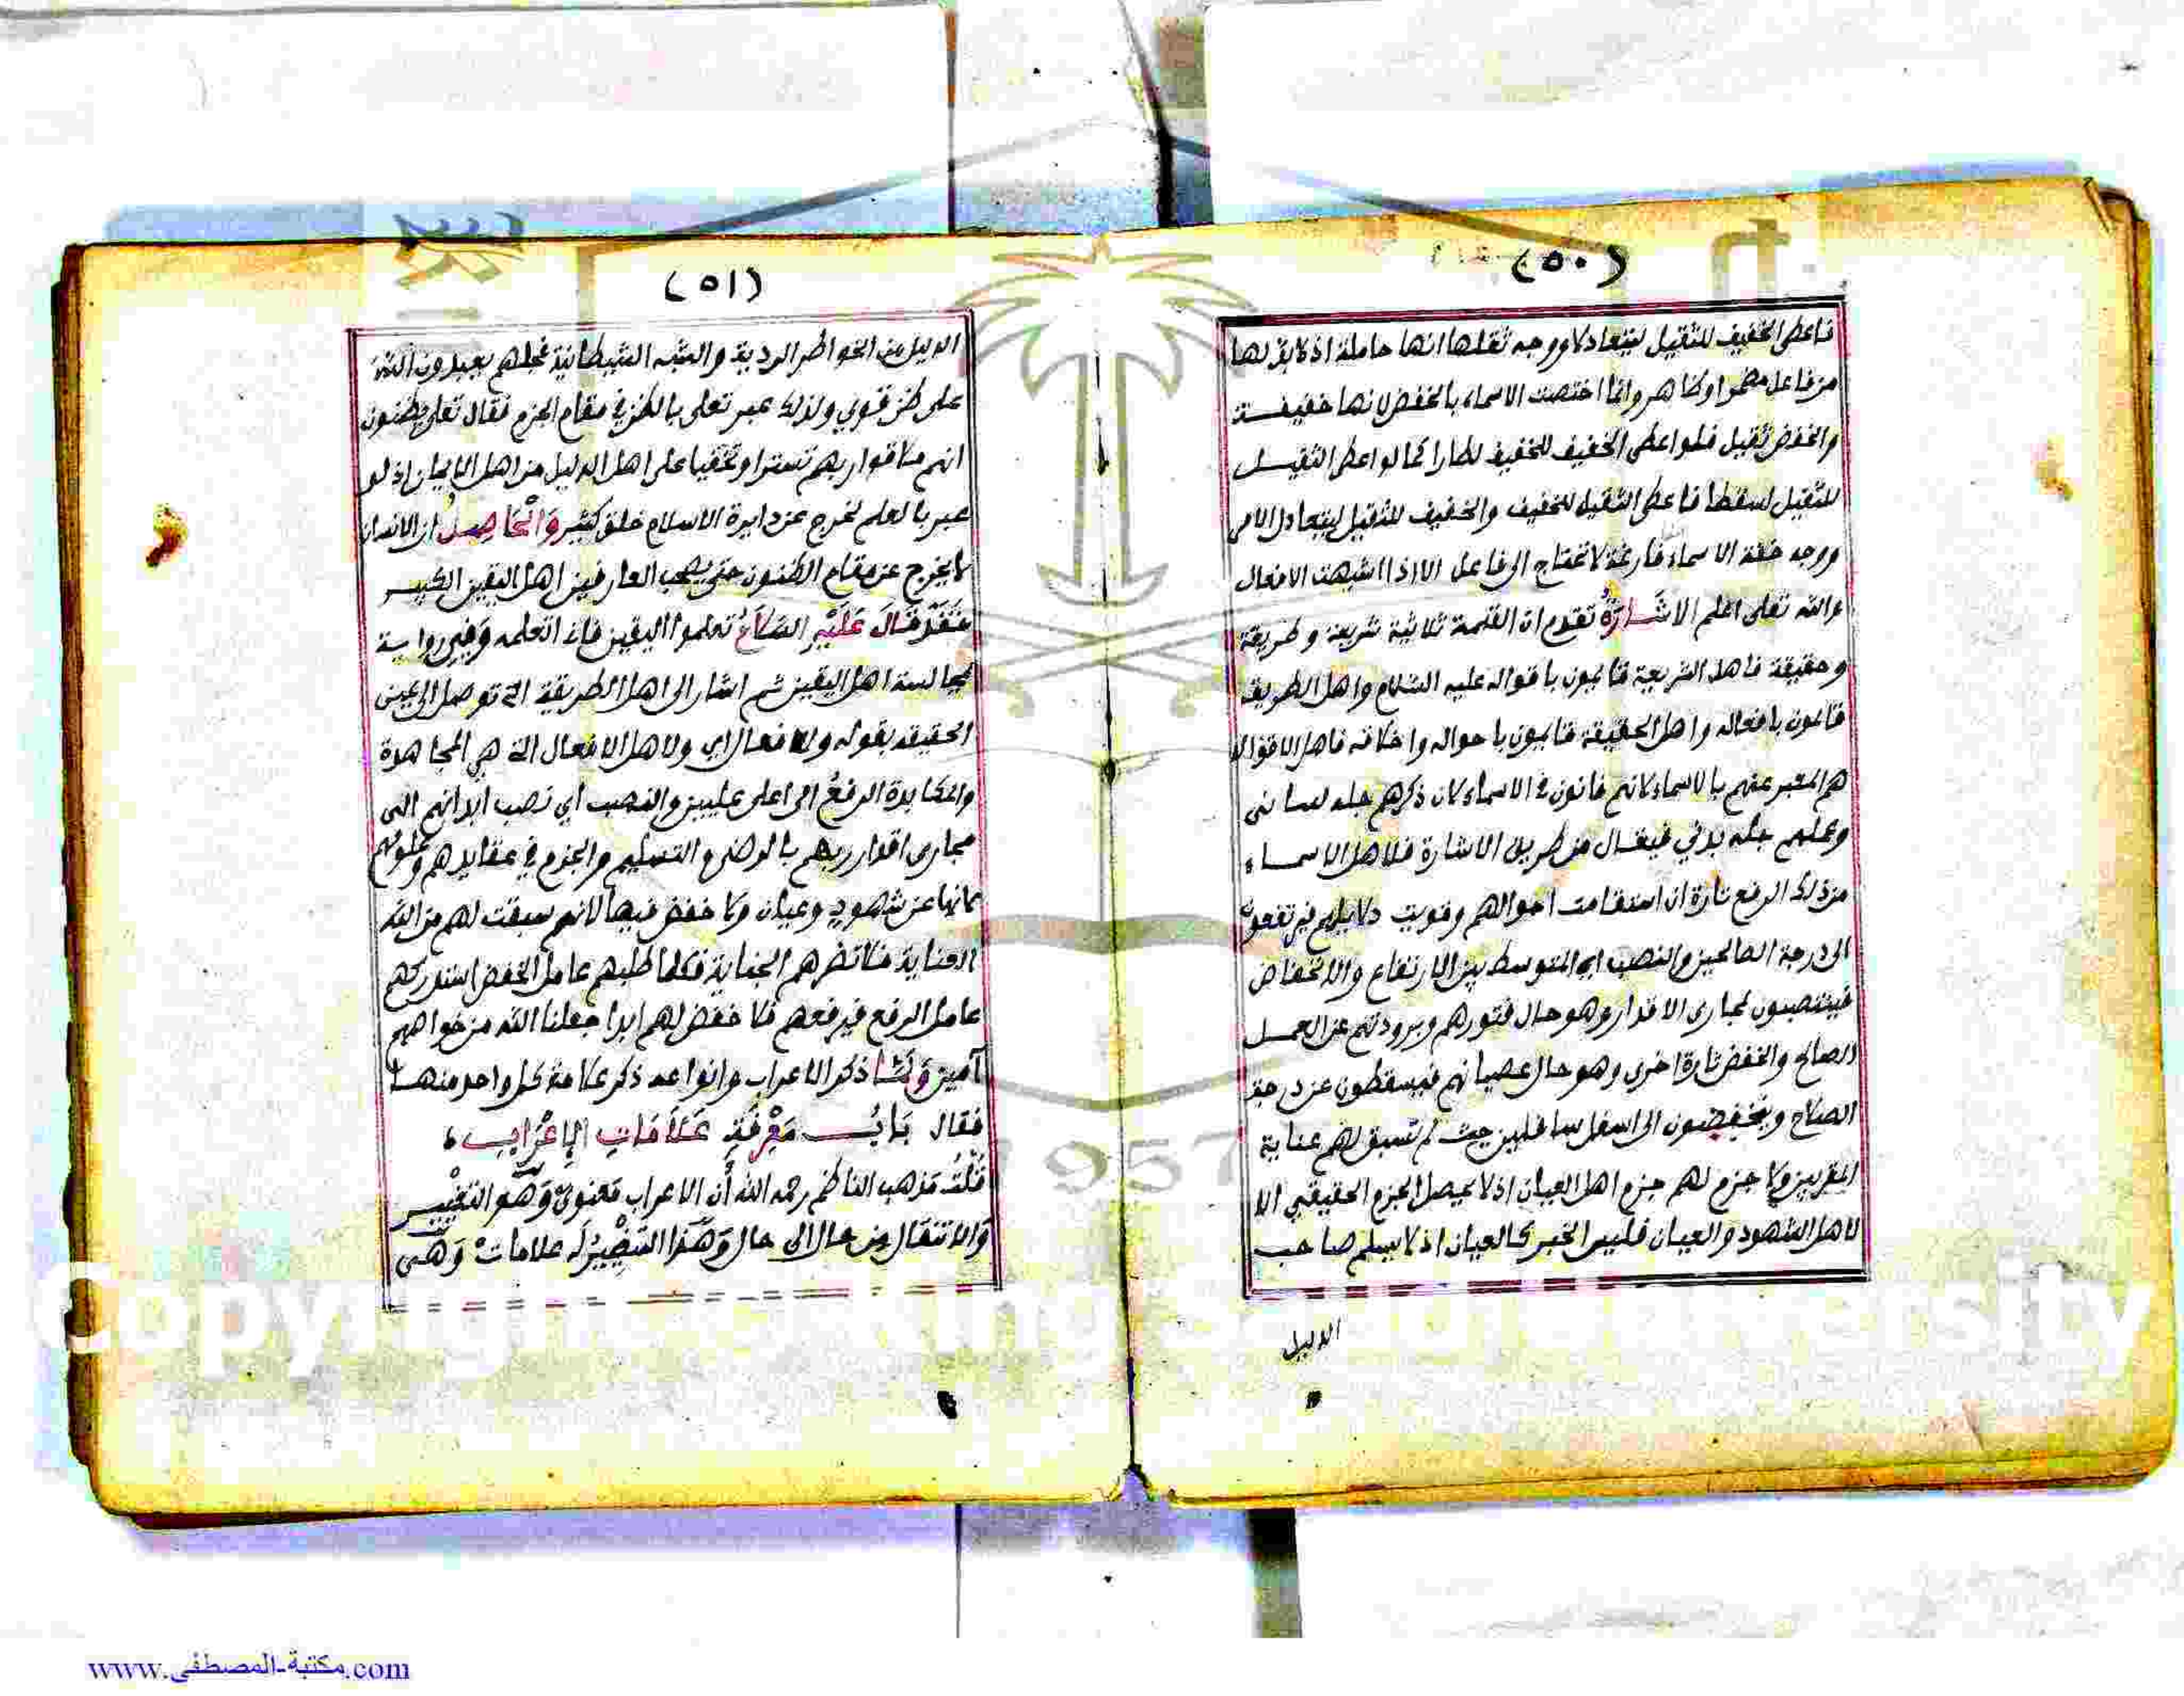 (٥٠)
فاعطى الخفيف للثقيل ليتعادلا ووجه ثقلها انها حاملة اذ لابد لها
من فاعل مضمرا وظاهر وانما اختصت الاسماء بالخفض لانها خفيفة
والخفض ثقيل فلو اعطى الخفيف للخفيف لطارا كما لو اعطى الثقيل
للثقيل لسقطا فاعطى الثقيل للخفيف والخفيف للثقيل ليتعادل الامر
ووجه خفة الاسماء فارغة لا تحتاج الى فاعل الا اذا اشبهت الافعال
والله تعلى اعلم الاشارة تقدم ان القلمة ثلاثية شريعة وطريقة
وحقيقة فاهل الشريعة قايمون باقواله عليه السلام واهل الطريقة
قايمون بافعاله واهل الحقيقة قايمون باحواله واخلاقه فاهل الاقوال
هم المعبر عنهم بالاسماء لانهم فانون في الاسماء لان ذكرهم جله لساني
وعملهم جله بدني فيقال من طريق الاشارة فلاهل الاسماء
من ذلك الرفع تارة ان استقامت احوالهم وقويت دلايلهم فيرتفعون
الى درجة الصالحين والنصب اي المتوسط بين الارتفاع والانخفاض
فينتصبون لمجارى الاقدار وهو حال فتورهم وبرودتهم عن العمل
الصالح والخفض تارة اخرى وهو حال عصيانهم فيسقطون عن درجة
الصلاح وينخفضون الى اسفل سافلين حيث لم تسبق لهم عناية
المقربين ولا جزم لهم جزم اهل العيان اذ لا يحصل الجزم الحقيقي الا
لاهل الشهود والعيان فليس الخبر كالعيان اذ لا يسلم صاحب
الدليل
(٥١)
الدليل من الخواطر الردية والشبه الشيطانية فجلهم يعبدون الله
على ظن قوي ولذلك عبر تعلى بالظن في مقام الجزم فقال تعلى يظنون
انهم ملاقوا ربهم تسترا وتخفيا على اهل الدليل من اهل الايمان اذ لو
عبر بالعلم لخرج عن دايرة الاسلام خلق كثير والحاصل ان الانسان
لا يخرج عن مقام الظنون حتى يصحب العارفين اهل اليقين الكبير
فقد قال عليه السلام تعلموا اليقين فاني اتعلمه وفي رواية
بمجالسة اهل اليقين ثم اشار الى اهل الطريقة التي توصل الى عين
الحقيقة بقوله وللافعال اي ولاهل الافعال التي هي المجاهدة
والمكابدة الرفع الى اعلى عليين والنصب اي نصب ابدانهم الى
مجارى اقدار ربهم بالرضى والتسليم والجزم في عقايدهم وعلومهم
لانها عن شهود وعيان ولا خفض فيها لانهم سبقت لهم من الله
العناية فلا تضرهم الجناية فكلما طلبهم عامل الخفض استدركهم
عامل الرفع فيرفعهم فلا خفض لهم ابدا جعلنا الله من خواصهم
آمين ولما ذكر الاعراب وانواعه ذكر علامة كل واحد منها
فقال باب معرفة علامات الإعراب
قلت مذهب الناظم رحمه الله أن الاعراب معنوي وهو التغيير
والانتقال من حال الى حال وهذا التغيير له علامات وهي
1957
Copyright © King Saud University
www.مكتبة-المصطفى.com